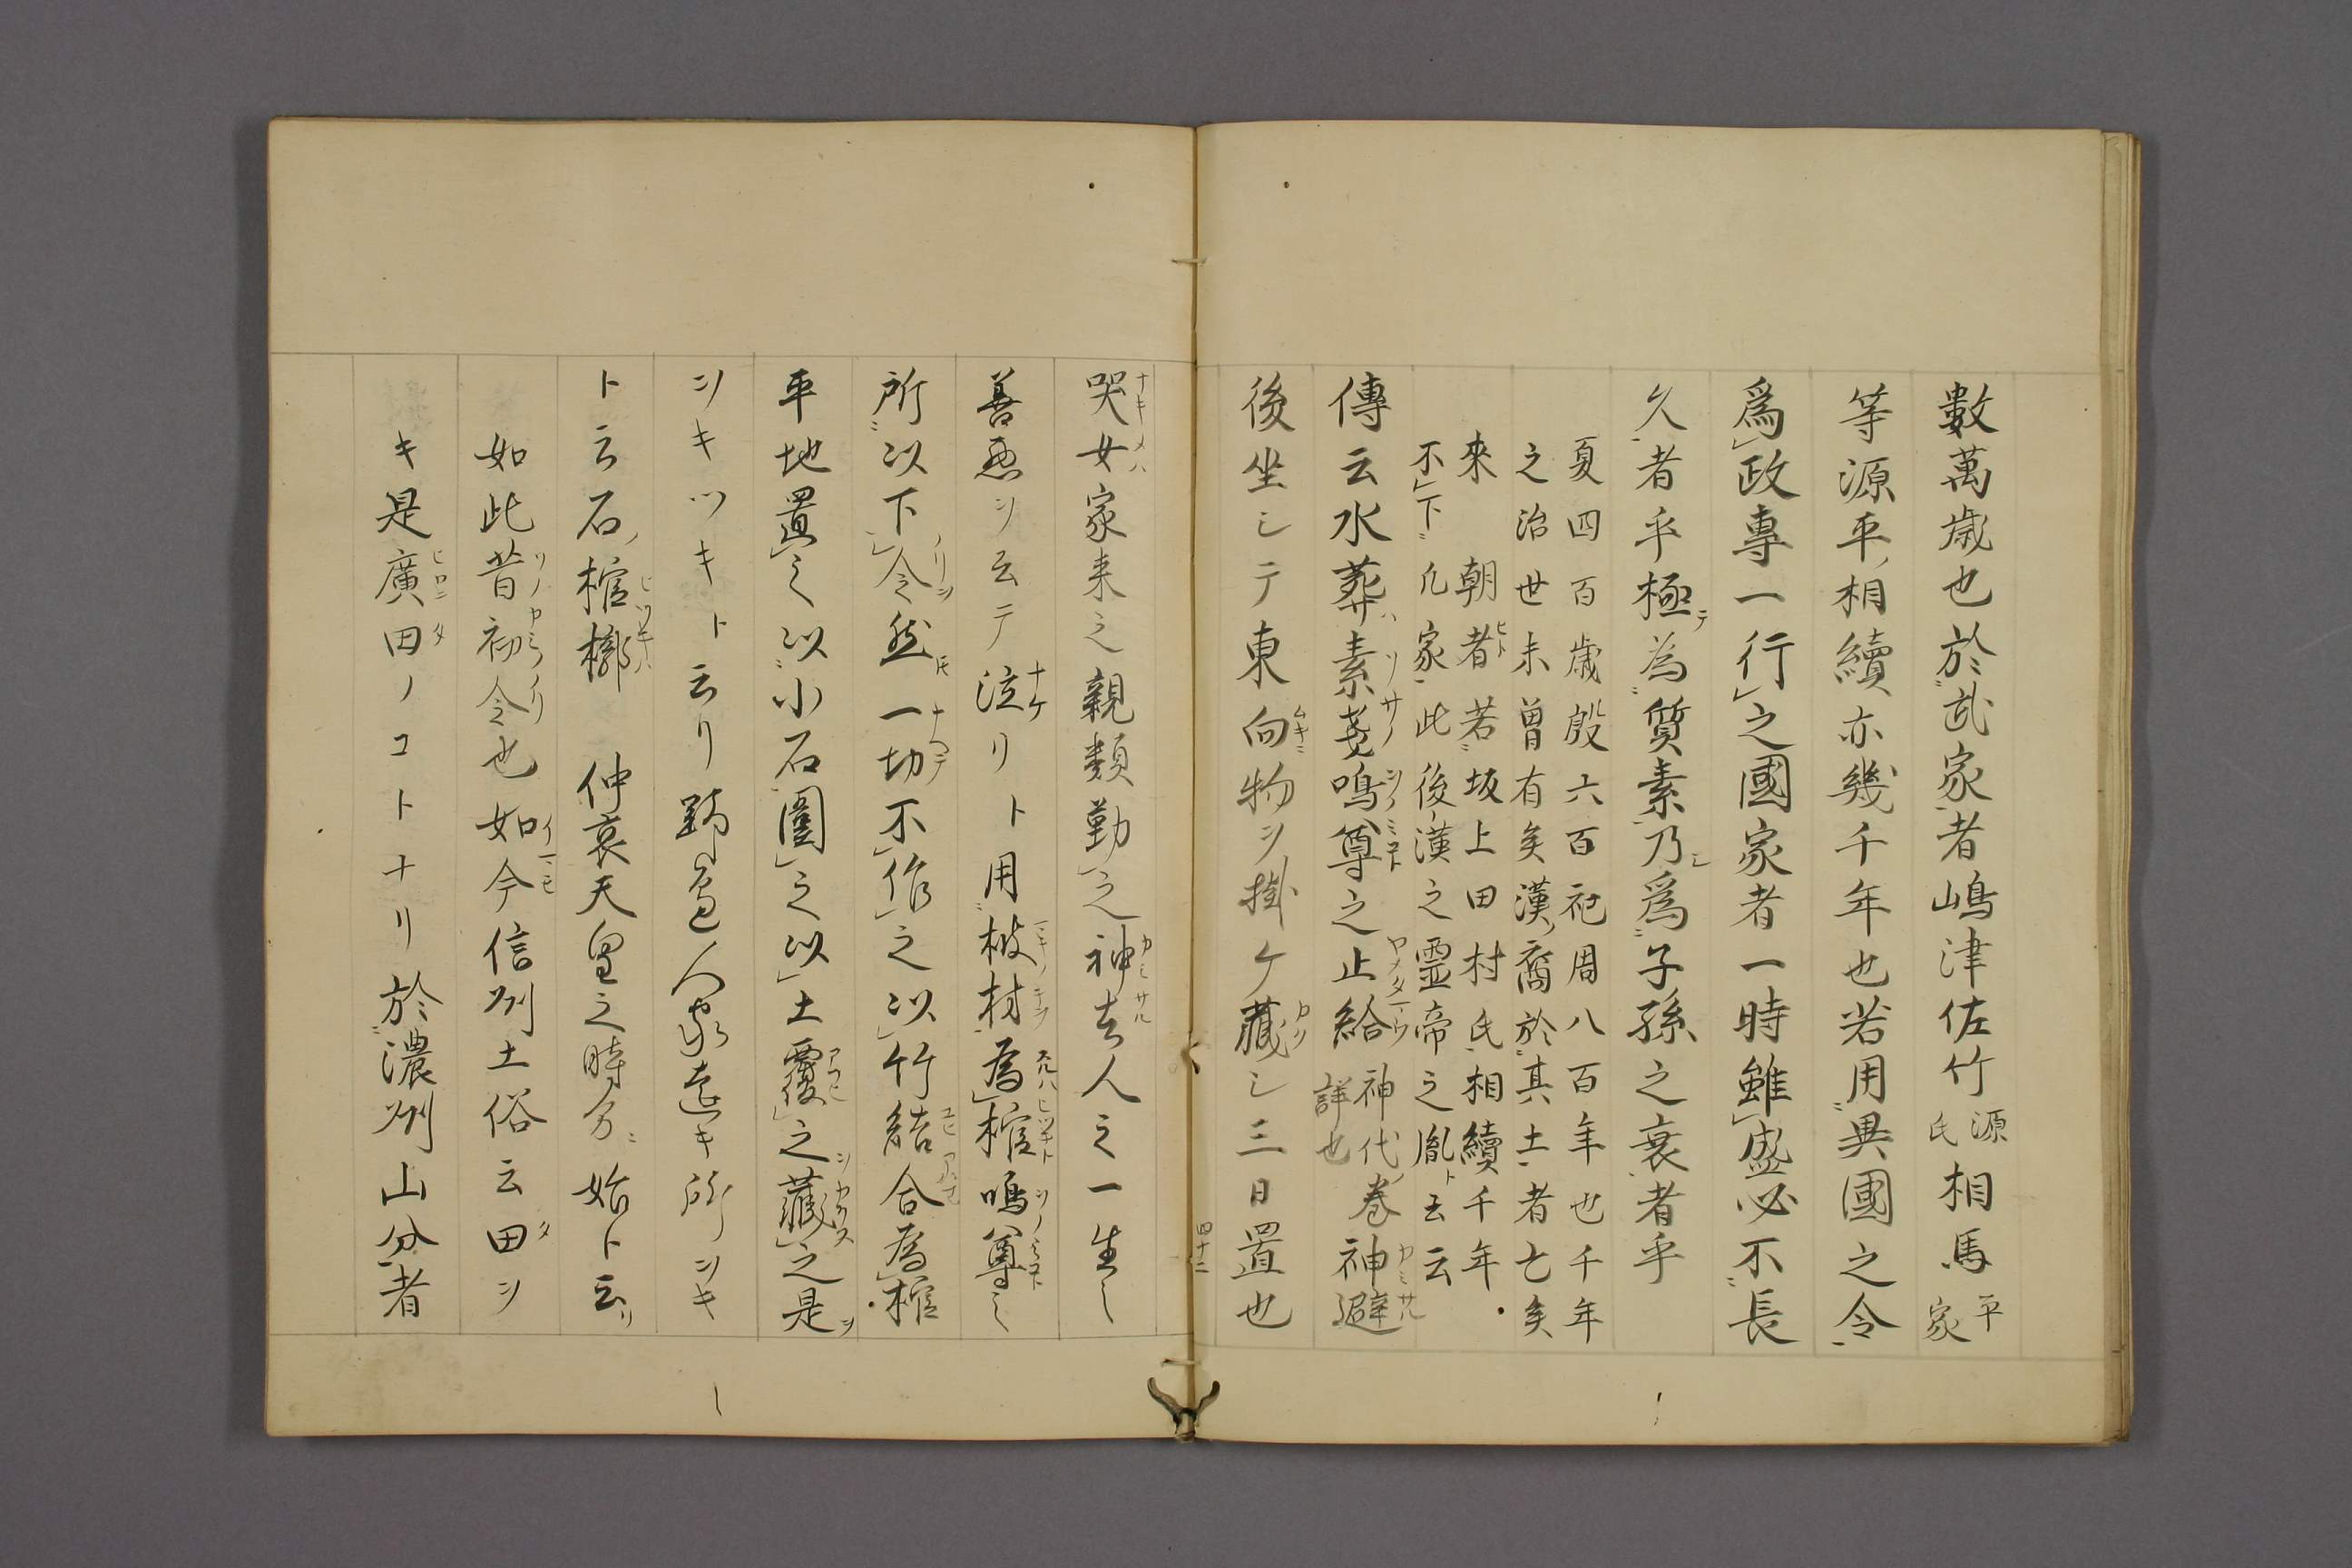 數萬歳也於武家者嶋津佐竹源氏相馬平家
等源平相續亦幾千年也若用異國之令
爲政專一行之國家者一時雖盛必不長
久者乎極為質素乃爲子孫之衰者乎
夏四百歳殷六百祀周八百年也千年
之治世未曾有矣漢裔於其土者亡矣
來朝者若坂上田村氏相續千年
不下凢家此後漢之霊帝之胤ト云云
傳云水葬素戔嗚尊之止給神代巻詳也神避
後坐シテ東向物ヲ掛ケ藏シ三日置也
四十二
哭女家来之親類勤之神去人之一生之
善悪ヲ云テ泣リト用柀材為棺嗚尊之
所以下令然一切不作之以竹結合為棺
平地置之以小石圍之以土覆之藏之是ヲ
シキツキト云リ野邉人家遠キ所ヲシキ
ト云石棺槨仲哀天皇之時分始ト云リ
如此昔初令也如今信州土俗云田ヲ
キ是廣田ノコトナリ於濃州山分者